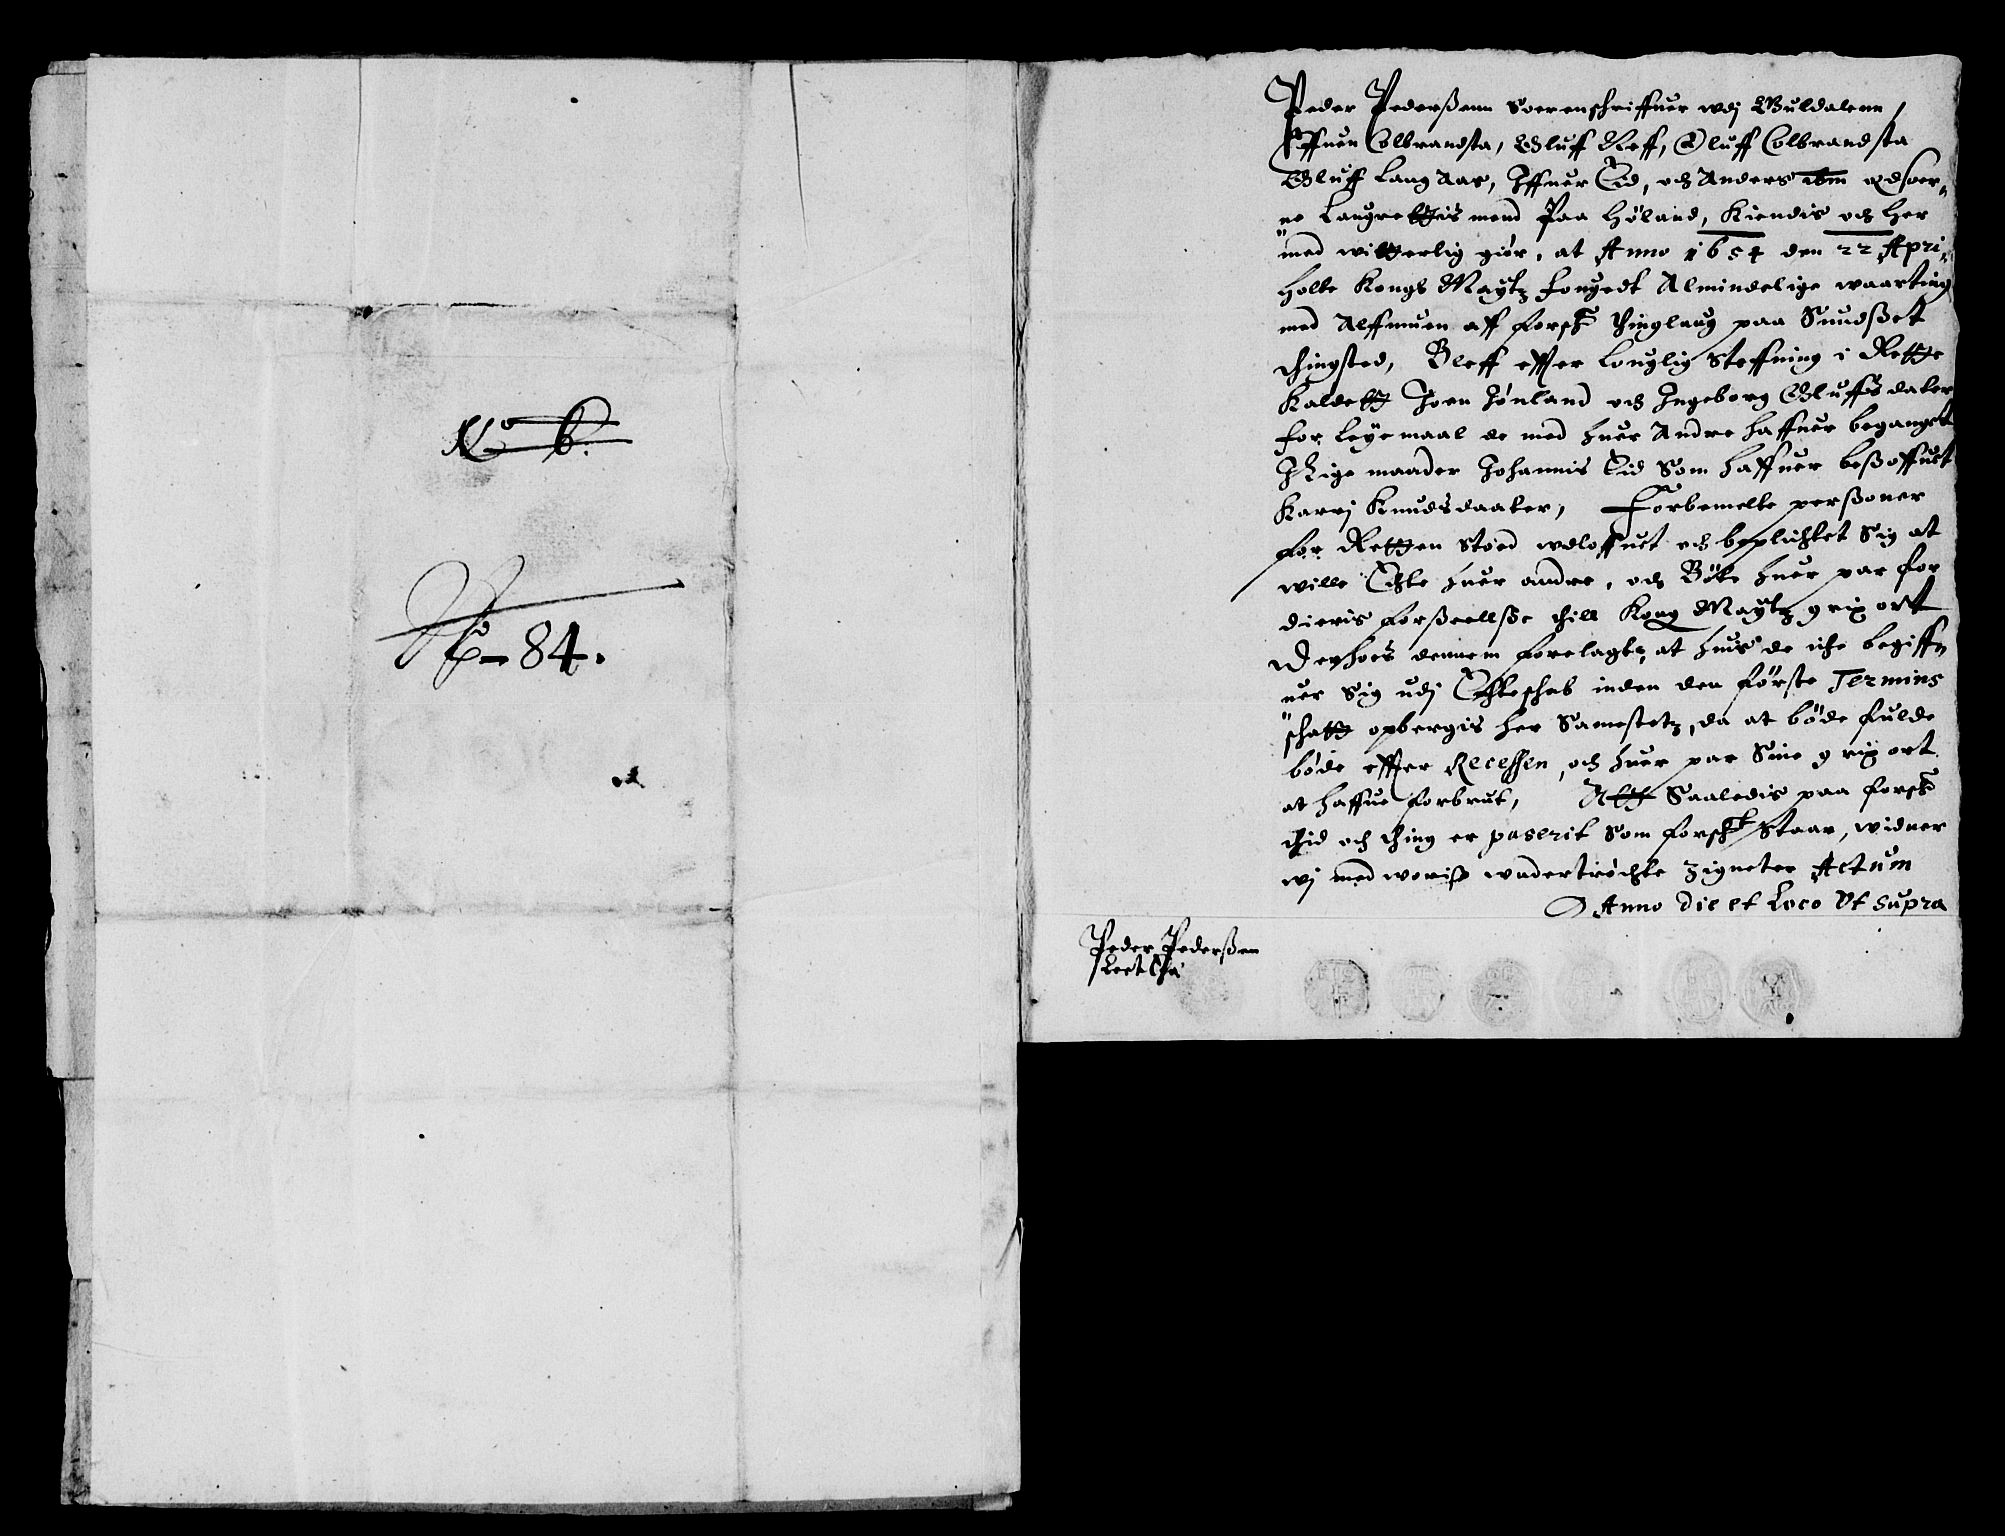 No 6.
No 84.
Peder Pederßenn Soerenschriffuer wdj Guldalenn,
Iffuen Colbrandsta, Oluff Reff, Oluff Colbrandsta
Oluff Langaas, Iffuer Eid, och Anders ibm Edsoer„
„ne Laugrettis mend Paa Høland, Kiendis och her
med witterlig giør, at Anno 1654 den 22 Apri„
holte Kongl Maytz fougedt Almindelige waarting
med Allmuen aff forsch thinglaug paa Sundßet
thingsted, Bleff effter louglig Steffning i Rette
Kaldett Joen Hønland och Ingeborg Oluffsdater
for Leyemaal de med huer Andre haffuer begangett
I lige maader Johannis Eid Som haffuer besoffuet
Karrj Knudsdaater, Forbemelte perßoner
for Retten stoed wdloffuet och beplichtet Sig at
wille Echte huer andre, och Bøte huer par for
dieris forßeellße thill Kong Maytz 9 rix ort
Derhoes dennem forelagt, at huis de iche begiff„
„uer Sig udj Echteschab inden den første Termins
schatt opbergis her Samestetz, da at bøde fulde
bøde effter Recessen, och huer par Sine 9 rix ort
at haffue forbrut, Alt Saaledis paa forsch
thid och thing er paserit Som forscht Staar, widner
wj med woriß wndertrøchte Zigneter Actum
Anno Die et Loco Vt supra
Peder Pederßen